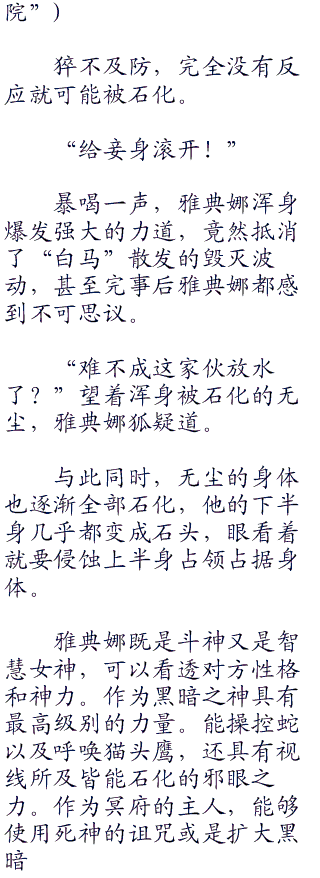 院”)
猝不及防，完全没有反
应就可能被石化。
“给妾身滚开！”
暴喝一声，雅典娜浑身
爆发强大的力道，竟然抵消
了“白马”散发的毁灭波
动，甚至完事后雅典娜都感
到不可思议。
“难不成这家伙放水
了？”望着浑身被石化的无
尘，雅典娜狐疑道。
与此同时，无尘的身体
也逐渐全部石化，他的下半
身几乎都变成石头，眼看着
就要侵蚀上半身占领占据身
体。
雅典娜既是斗神又是智
慧女神，可以看透对方性格
和神力。作为黑暗之神具有
最高级别的力量。能操控蛇
以及呼唤猫头鹰，还具有视
线所及皆能石化的邪眼之
力。作为冥府的主人，能够
使用死神的诅咒或是扩大黑
暗